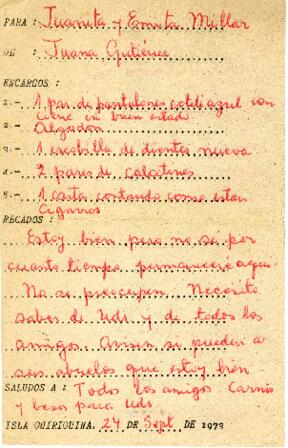 PARA : Juanita y Emita Millar
DE : Juana Gutiérrez
ENCARGOS :
1.- 1 par de pantalones cotelé azul con
cierre en buen estado
2.- Algodón
3.- 1 escobilla de dientes nueva
4.- 2 pares de calcetines
5.- 1 carta contando como estan
Cigarros
RECADOS :
Estoy bien pero no sé por
cuanto tiempo permaneceré aqui.
No se preocupen. Necesito
saber de Uds y de todos los
amigos. Avisen si pueden a
sus abuelos que estoy bien
SALUDOS A : Todos los amigos Cariños
y besos para uds
ISLA QUIRIQUINA, 24 DE Sept DE 1973